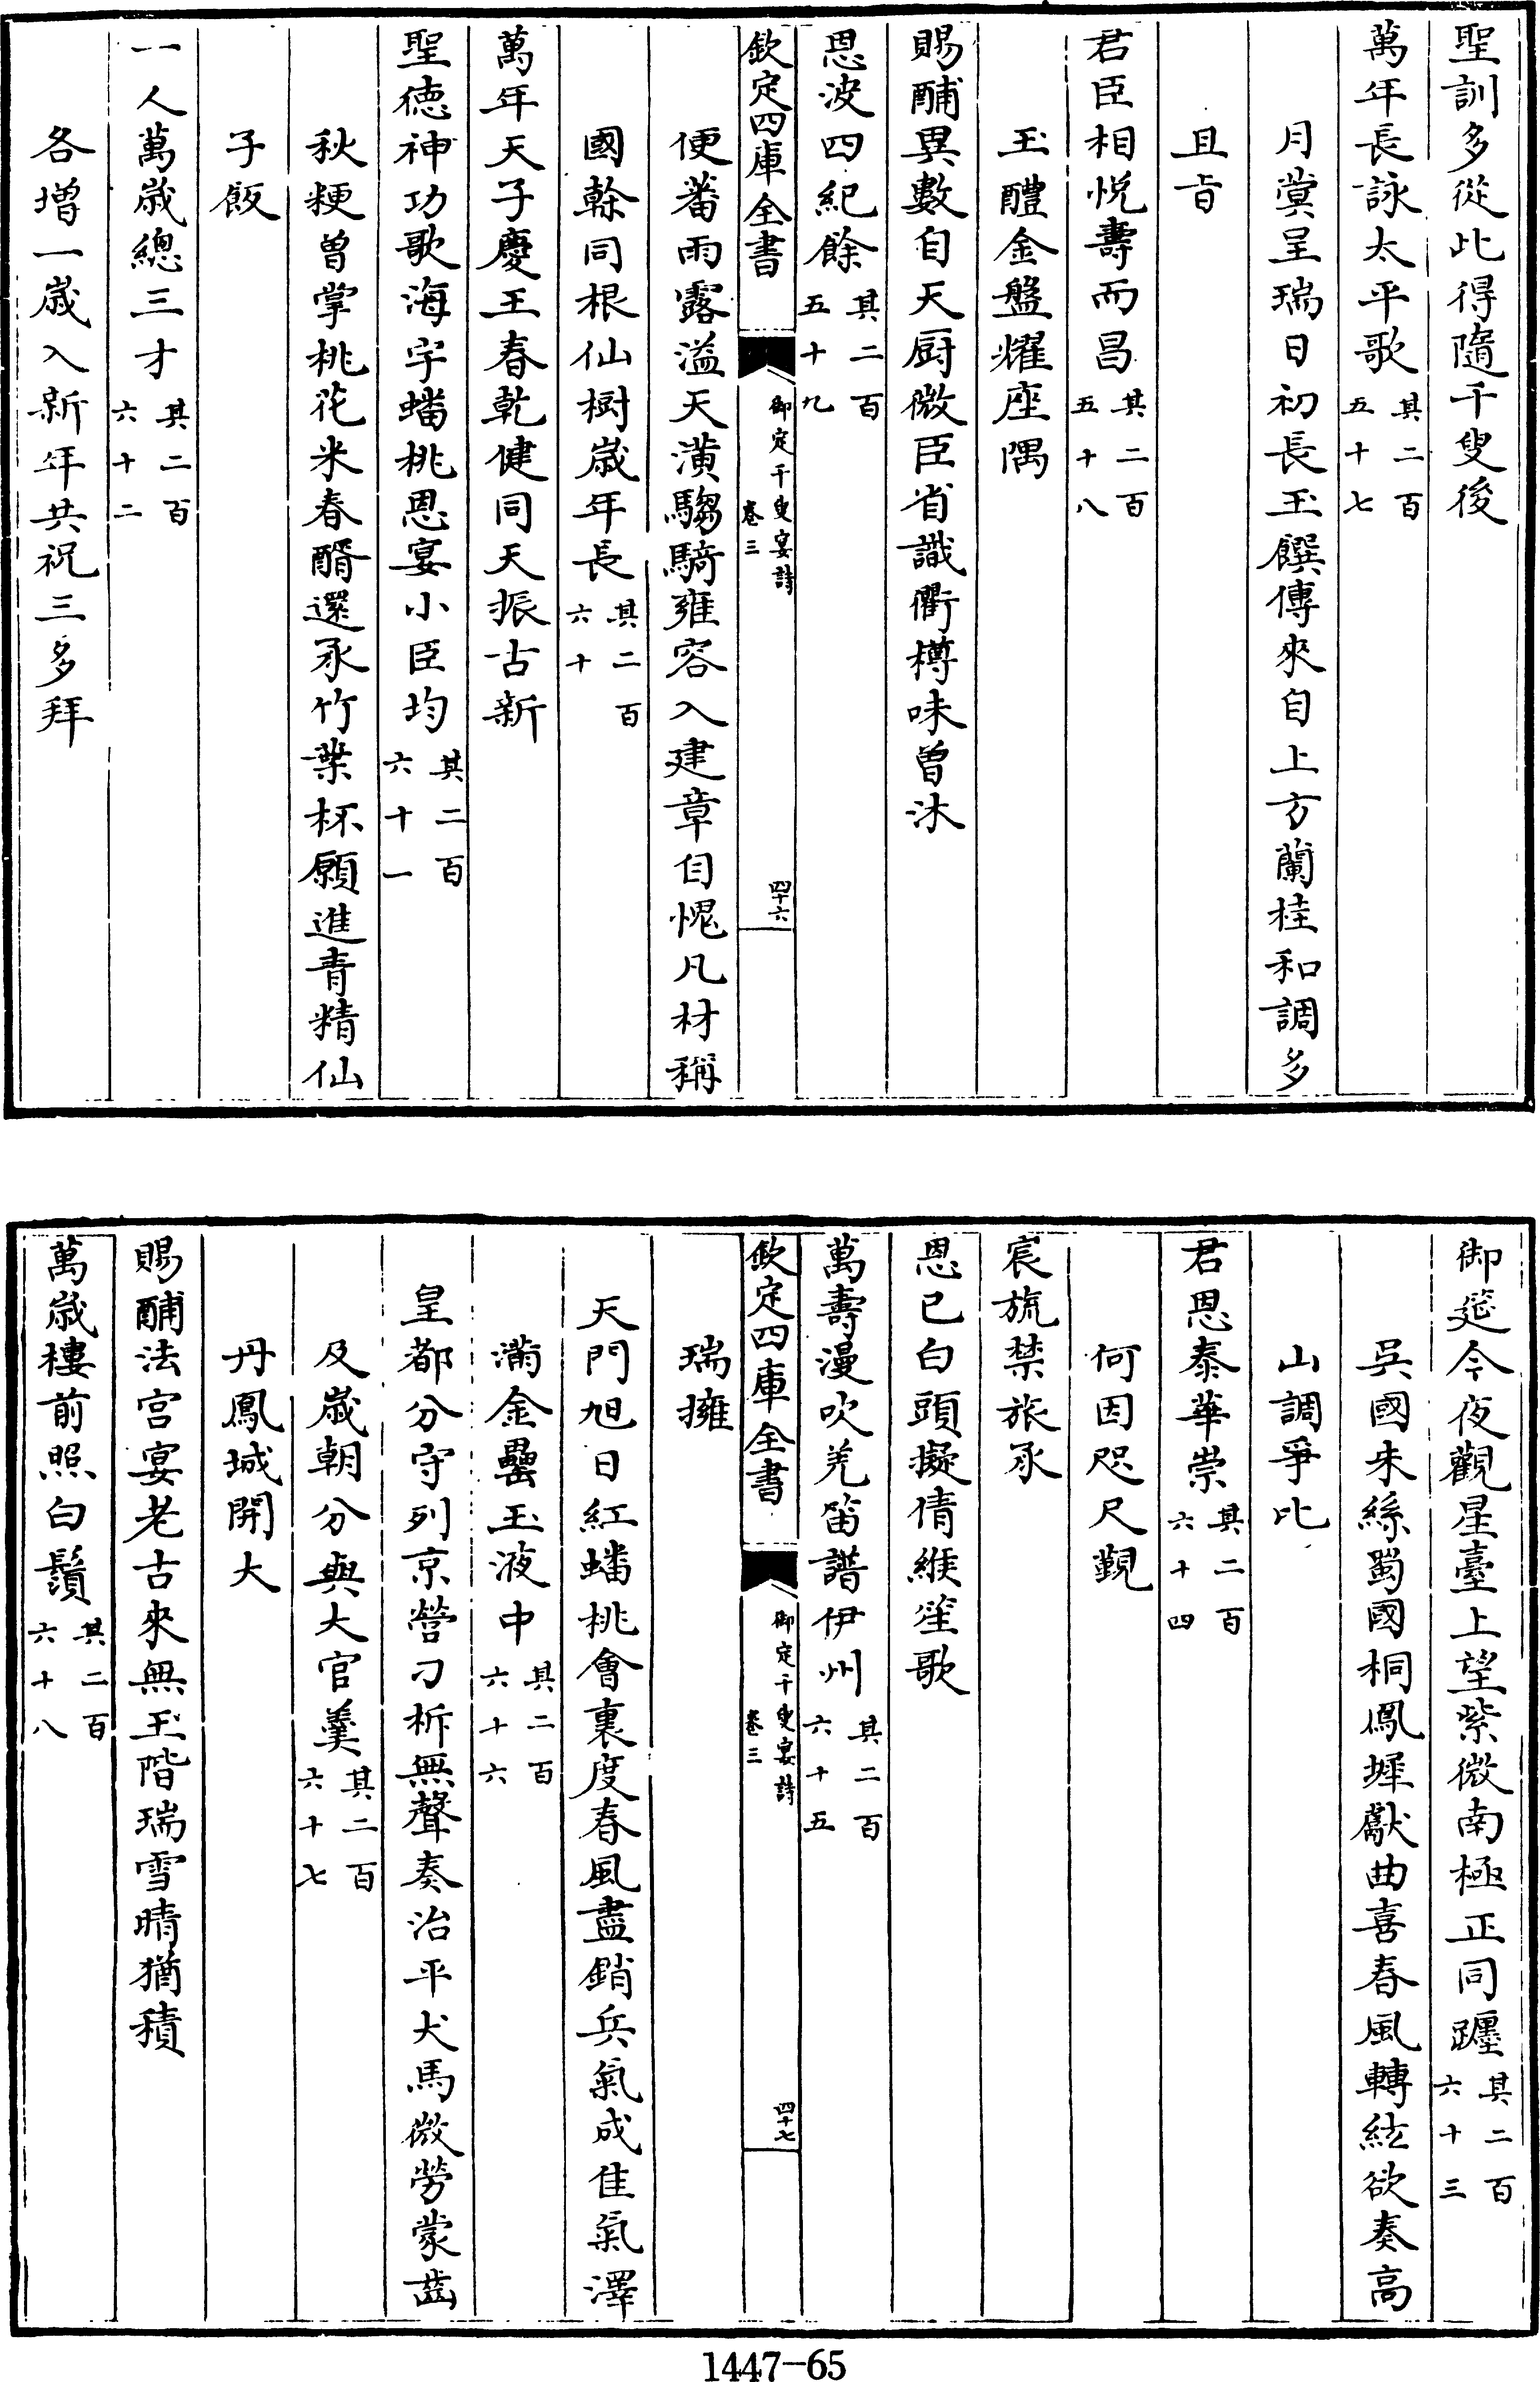 聖訓多從此得隨千叟後
萬年長詠太平歌其二百五十七
月蓂呈瑞日初長玉饌傳來自上方蘭桂和調多
且旨
君臣相悅壽而昌其二百五十八
玉醴金盤燿座隅
賜酺異數自天厨微臣省識衢樽味曾沐
恩波四紀餘其二百五十九
欽定四庫全書
御定千叟宴詩
卷三
四十六
便蕃雨露溢天潢騶騎雍容入建章自愧凡材稱
國榦同根仙樹歳年長其二百六十
萬年天子慶王春乾健同天振古新
聖德神功歌海宇蟠桃恩宴小臣均其二百六十一
秋粳曾掌桃花米春醑還承竹葉杯願進青精仙
子飯
一人萬歳總三才其二百六十二
各增一歳入新年共祝三多拜
御筵今夜觀星臺上望紫微南極正同躔其二百六十三
吳國朱絲蜀國桐鳳墀獻曲喜春風轉絃欲奏高
山調爭比
君恩泰華崇其二百六十四
何因咫尺覲
宸旒禁旅承
恩已白頭擬倩緱笙歌
萬壽漫吹羌笛譜伊州其二百六十五
欽定四庫全書
御定千叟宴詩
卷三
四十七
瑞擁
天門旭日紅蟠桃會裏度春風盡銷兵氣成佳氣澤
滿金罍玉液中其二百六十六
皇都分守列京營刁柝無聲奏治平犬馬微勞蒙齒
及歳朝分與大官羹其二百六十七
丹鳳城開大
賜酺法宫宴老古來無玉階瑞雪晴猶積
萬歳樓前照白鬚其二百六十八
1447-65